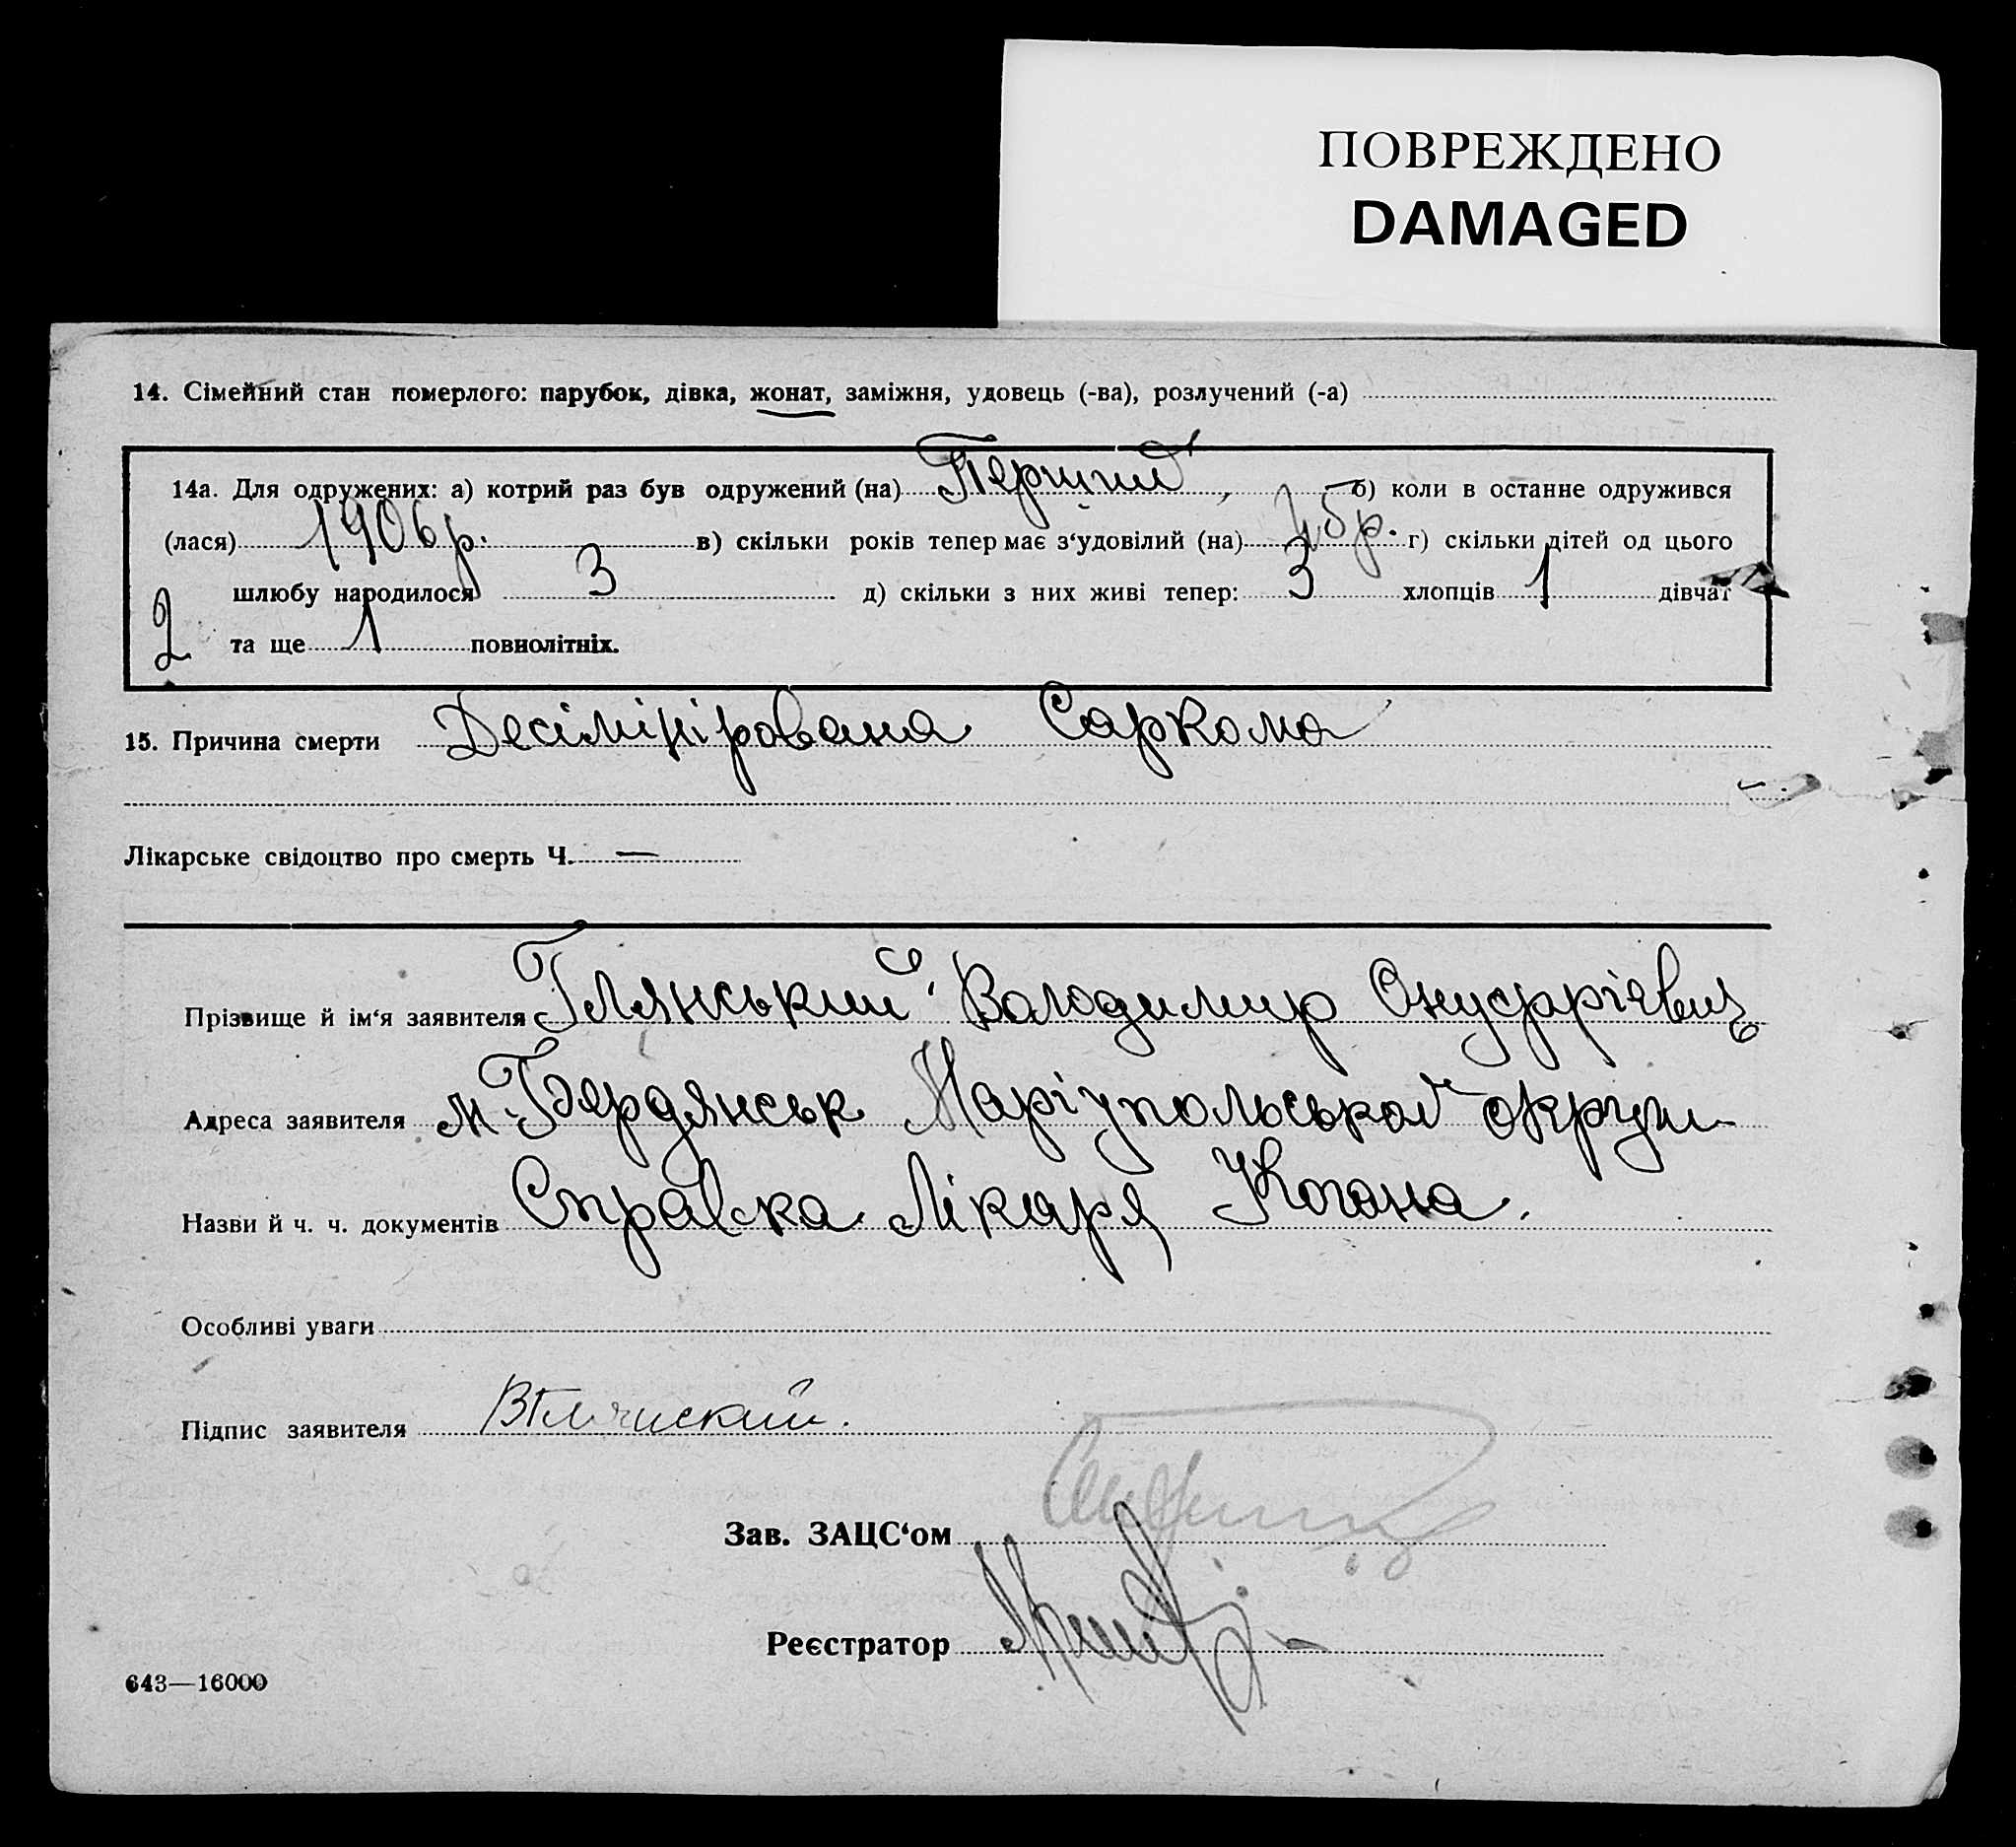 ПОВРЕЖДЕНО
DAMAGED
14. Сімейний стан померлого: парубок, дівка, жонат, заміжня, удовець (-ва), розлучений (-а)
14а. Для одружених: а) котрий раз був одружений (на) Перший, б) коли в останне одружився
(лася) 1906 р. в) скільки років тепер має з‘удовілий (на) г) скільки дітей од цього
шлюбу народилося 3 д) скільки з них живі тепер: 3 хлопців 1 дівчат
2 та ще 1 повнолітніх.
15. Причина смерти Десімінірована Саркома
Лікарське свідоцтво про смерть Ч. —
Прізвище й ім‘я заявителя Глянський Володимир Онуфрієвич
Адреса заявителя м. Бердянськ Маріупольської округи
Назви й ч. ч. документів Справка Лікаря Когана.
Особливі уваги
Підпис заявителя ВГлянский.
Зав. ЗАЦС‘ом
Реєстратор
643—16000